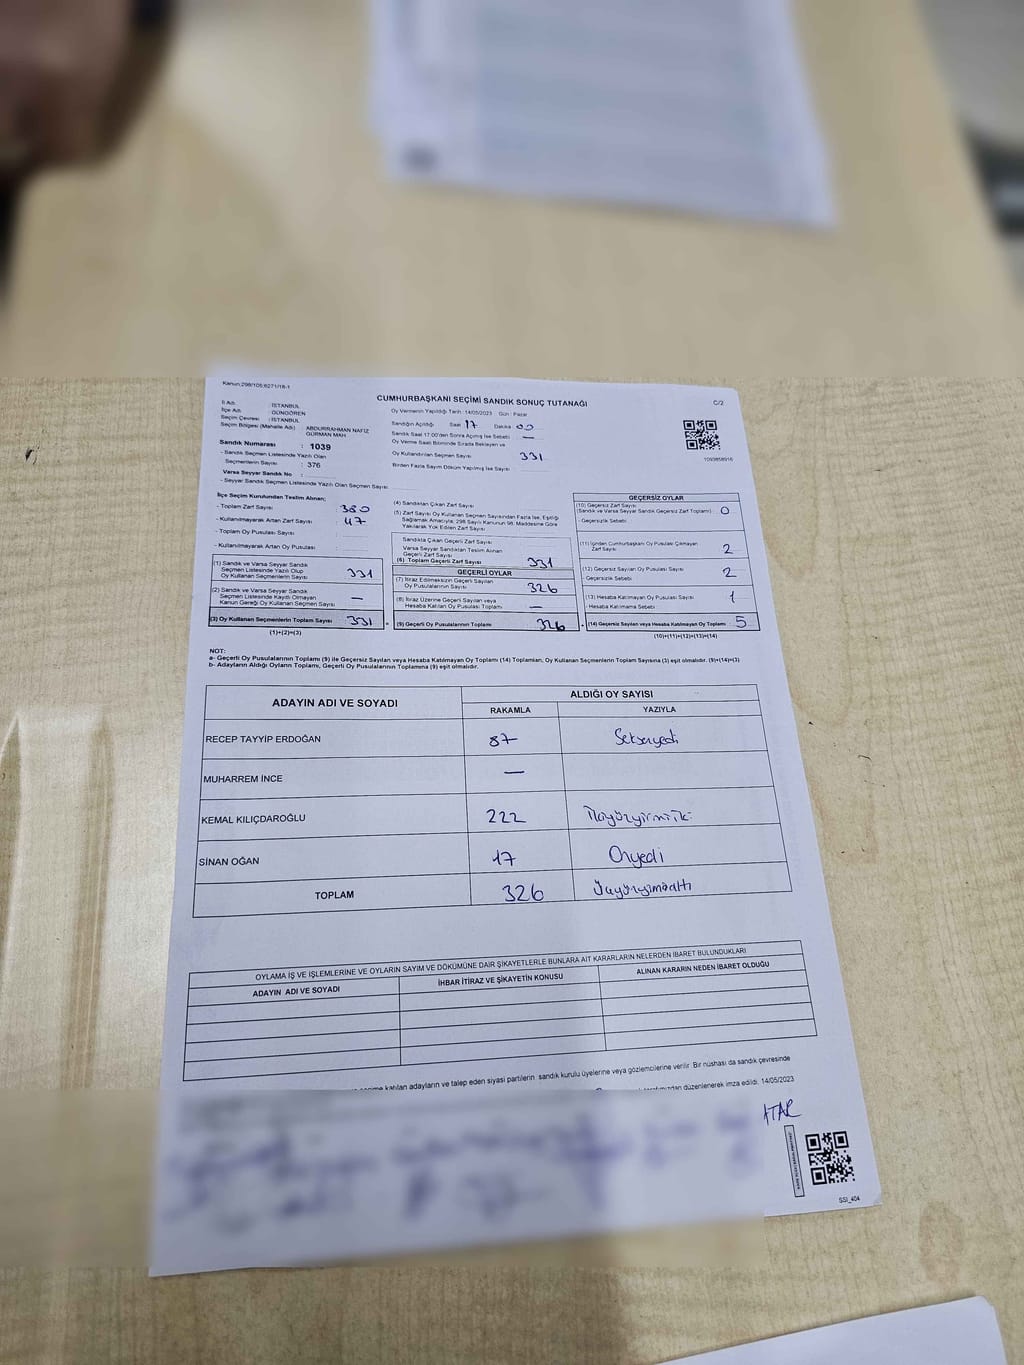 Kanun:298/105;6271/18-1
CUMHURBAŞKANI SEÇİMİ SANDIK SONUÇ TUTANAĞI
C/2
İl Adı : İSTANBUL
İlçe Adı : GÜNGÖREN
Seçim Çevresi : İSTANBUL
Seçim Bölgesi (Mahalle Adı) ABDURRAHMAN NAFİZ GÜRMAN MAH
Sandık Numarası : 1039
- Sandık Seçmen Listesinde Yazılı Olan
Seçmenlerin Sayısı : 376
Varsa Seyyar Sandık No :
- Seyyar Sandık Seçmen Listesinde Yazılı Olan Seçmen Sayısı:
Oy Vermenin Yapıldığı Tarih :14/05/2023 Gün : Pazar
Sandığın Açıldığı Saat 17 Dakika : 00
Sandık Saat 17:00'den Sonra Açılmış İse Sebebi : —
Oy Verme Saati Bitiminde Sırada Bekleyen ve
Oy Kullandırılan Seçmen Sayısı 331
Birden Fazla Sayım Döküm Yapılmış İse Sayısı :
1093858916
İlçe Seçim Kurulundan Teslim Alınan;
- Toplam Zarf Sayısı 380
- Kullanılmayarak Artan Zarf Sayısı : 47
- Toplam Oy Pusulası Sayısı :
- Kullanılmayarak Artan Oy Pusulası :
(1) Sandık ve Varsa Seyyar Sandık
Seçmen Listesinde Yazılı Olup
Oy Kullanan Seçmenlerin Sayısı 331
(2) Sandık ve Varsa Seyyar Sandık
Seçmen Listesinde Kayıtlı Olmayan
Kanun Gereği Oy Kullanan Seçmen Sayısı —
(3) Oy Kullanan Seçmenlerin Toplam Sayısı 331
(1)+(2)=(3)
(4) Sandıktan Çıkan Zarf Sayısı
(5) Zarf Sayısı Oy Kullanan Seçmen Sayısından Fazla İse, Eşitliği
Sağlamak Amacıyla; 298 Sayılı Kanunun 98. Maddesine Göre
Yakılarak Yok Edilen Zarf Sayısı
Sandıkta Çıkan Geçerli Zarf Sayısı
Varsa Seyyar Sandıktan Teslim Alınan
Geçerli Zarf Sayısı
(6) Toplam Geçerli Zarf Sayısı 331
GEÇERLİ OYLAR
(7) İtiraz Edilmeksizin Geçerli Sayılan
Oy Pusulalarının Sayısı 326
(8) İtiraz Üzerine Geçerli Sayılan veya
Hesaba Katılan Oy Pusulası Toplamı —
(9) Geçerli Oy Pusulalarının Toplamı 326
GEÇERSİZ OYLAR
(10) Geçersiz Zarf Sayısı
(Sandık ve Varsa Seyyar Sandık Geçersiz Zarf Toplamı) 0
- Geçersizlik Sebebi
(11) İçinden Cumhurbaşkanı Oy Pusulası Çıkmayan
Zarf Sayısı 2
(12) Geçersiz Sayılan Oy Pusulası Sayısı 2
- Geçersizlik Sebebi
(13) Hesaba Katılmayan Oy Pusulası Sayısı 1
Hesaba Katılmama Sebebi
(14) Geçersiz Sayılan veya Hesaba Katılmayan Oy Toplamı 5
(10)+(11)+(12)+(13)=(14)
NOT:
a- Geçerli Oy Pusulalarının Toplamı (9) ile Geçersiz Sayılan veya Hesaba Katılmayan Oy Toplamı (14) Toplamları, Oy Kullanan Seçmenlerin Toplam Sayısına (3) eşit olmalıdır. (9)+(14)=(3)
b- Adayların Aldığı Oyların Toplamı, Geçerli Oy Pusulalarının Toplamına (9) eşit olmalıdır.
ADAYIN ADI VE SOYADI
ALDIĞI OY SAYISI
RAKAMLA YAZIYLA
RECEP TAYYİP ERDOĞAN 87 Seksenyedi
MUHARREM İNCE —
KEMAL KILIÇDAROĞLU 222 İkiyüzyirmiiki
SİNAN OĞAN 17 Onyedi
TOPLAM 326 Üçyüzyirmialtı
OYLAMA İŞ VE İŞLEMLERİNE VE OYLARIN SAYIM VE DÖKÜMÜNE DAİR ŞİKAYETLERLE BUNLARA AİT KARARLARIN NELERDEN İBARET BULUNDUKLARI
ADAYIN ADI VE SOYADI İHBAR İTİRAZ VE ŞİKAYETİN KONUSU ALINAN KARARIN NEDEN İBARET OLDUĞU
seçime katılan adayların ve talep eden siyasi partilerin sandık kurulu üyelerine veya gözlemcilerine verilir. Bir nüshası da sandık çevresinde
tarafımızdan düzenlenerek imza edildi. 14/05/2023
ATAR
SSI_404